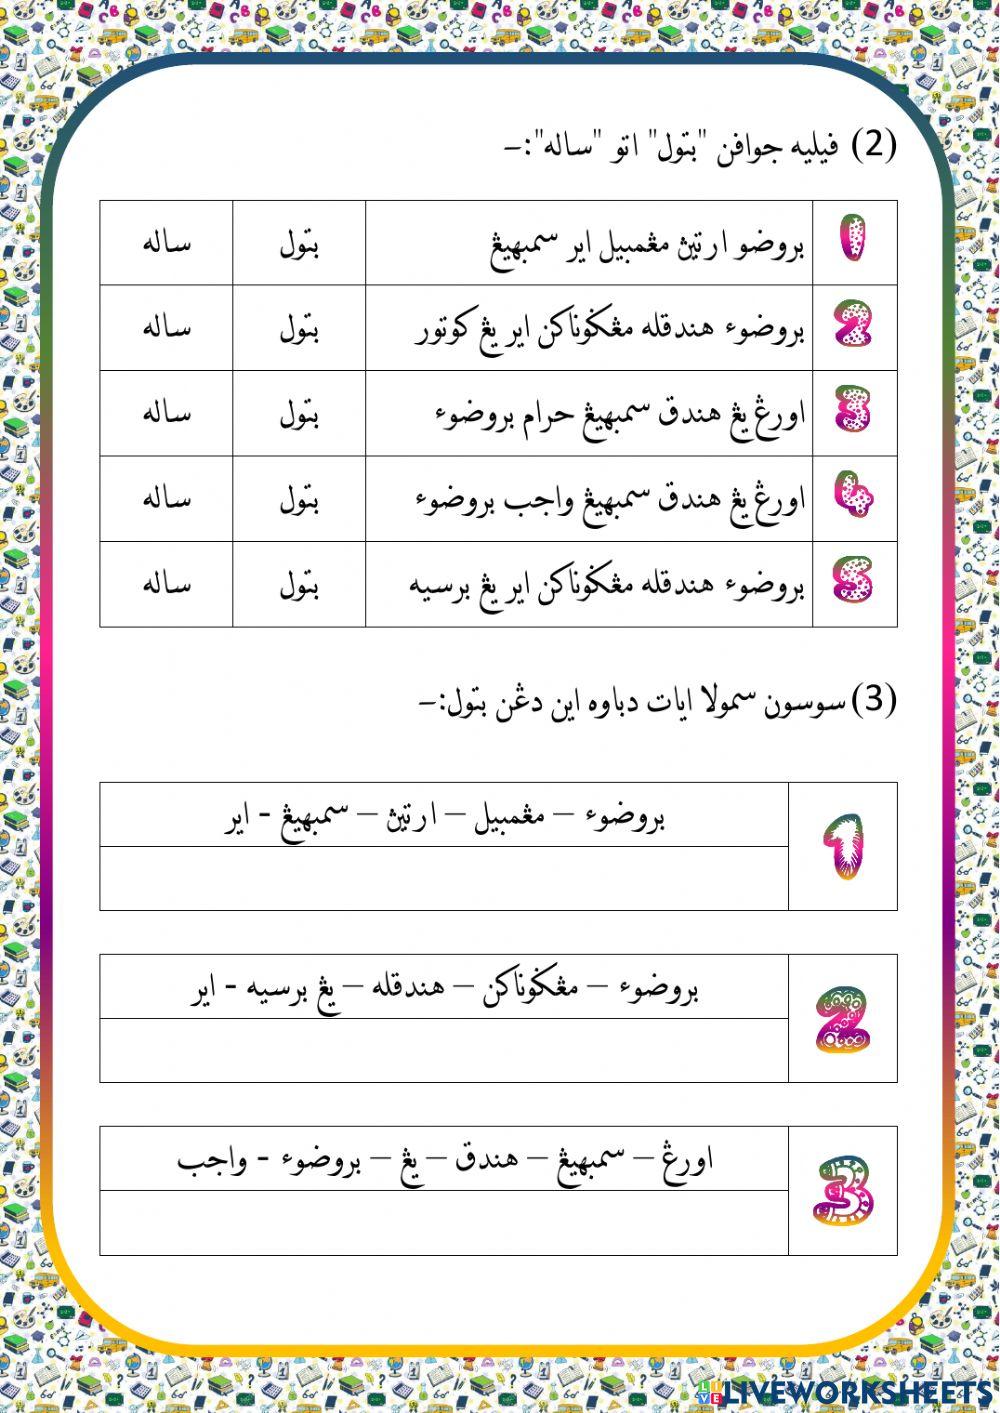 (2) فيليه جوافن "بتول" اتو "ساله":–
1 بروضو ارتيڽ مڠمبيل اير سمبهيڠ بتول ساله
2 بروضوء هندقله مڠݢوناكن اير يڠ كوتور بتول ساله
3 اورڠ يڠ هندق سمبهيڠ حرام بروضوء بتول ساله
4 اورڠ يڠ هندق سمبهيڠ واجب بروضوء بتول ساله
5 بروضوء هندقله مڠݢوناكن اير يڠ برسيه بتول ساله
(3) سوسون سمولا ايات دباوه اين دڠن بتول:–
1 بروضوء – مڠمبيل – ارتيڽ – سمبهيڠ - اير
2 بروضوء – مڠݢوناكن – هندقله – يڠ برسيه - اير
3 اورڠ – سمبهيڠ – هندق – يڠ – بروضوء - واجب
LIVE LIVEWORKSHEETS